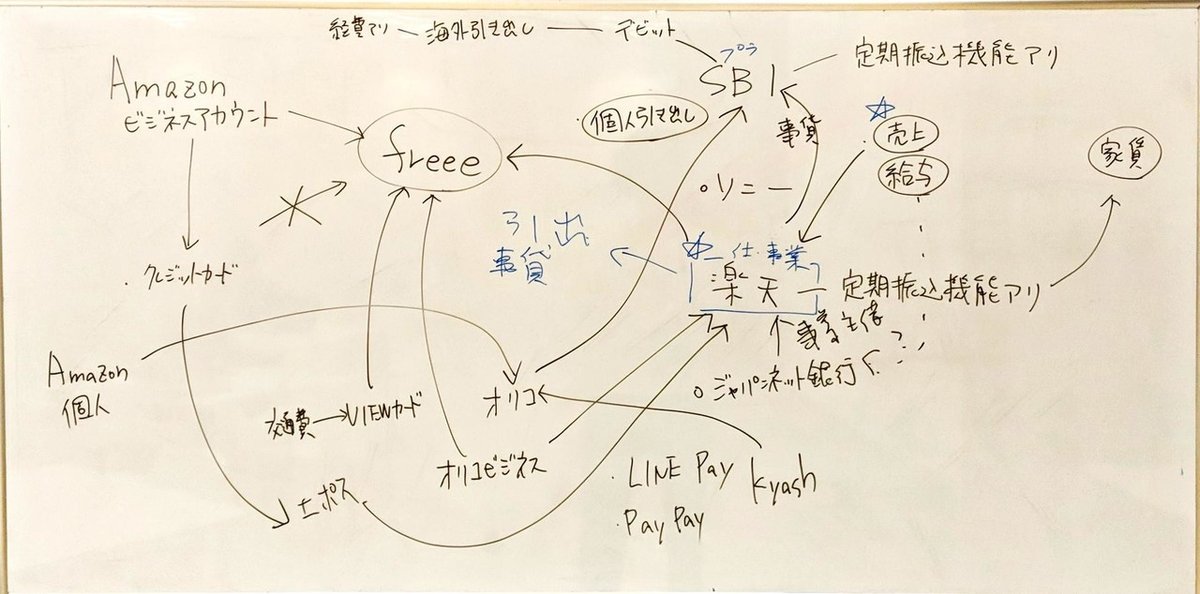 経費アリ
海外引き出し
デビット
プラ
SBI
定期振込機能アリ
Amazon
ビジネスアカウント
個人引き出し
事貸
売上
給与
家賃
freee
ソニー
引出
事貸
仕・事業
楽天
定期振込機能アリ
クレジットカード
事業主借
ジャパンネット銀行
Amazon
個人
オリコ
交通費→VIEWカード
オリコビジネス
エポス
LINE Pay
Kyash
PayPay